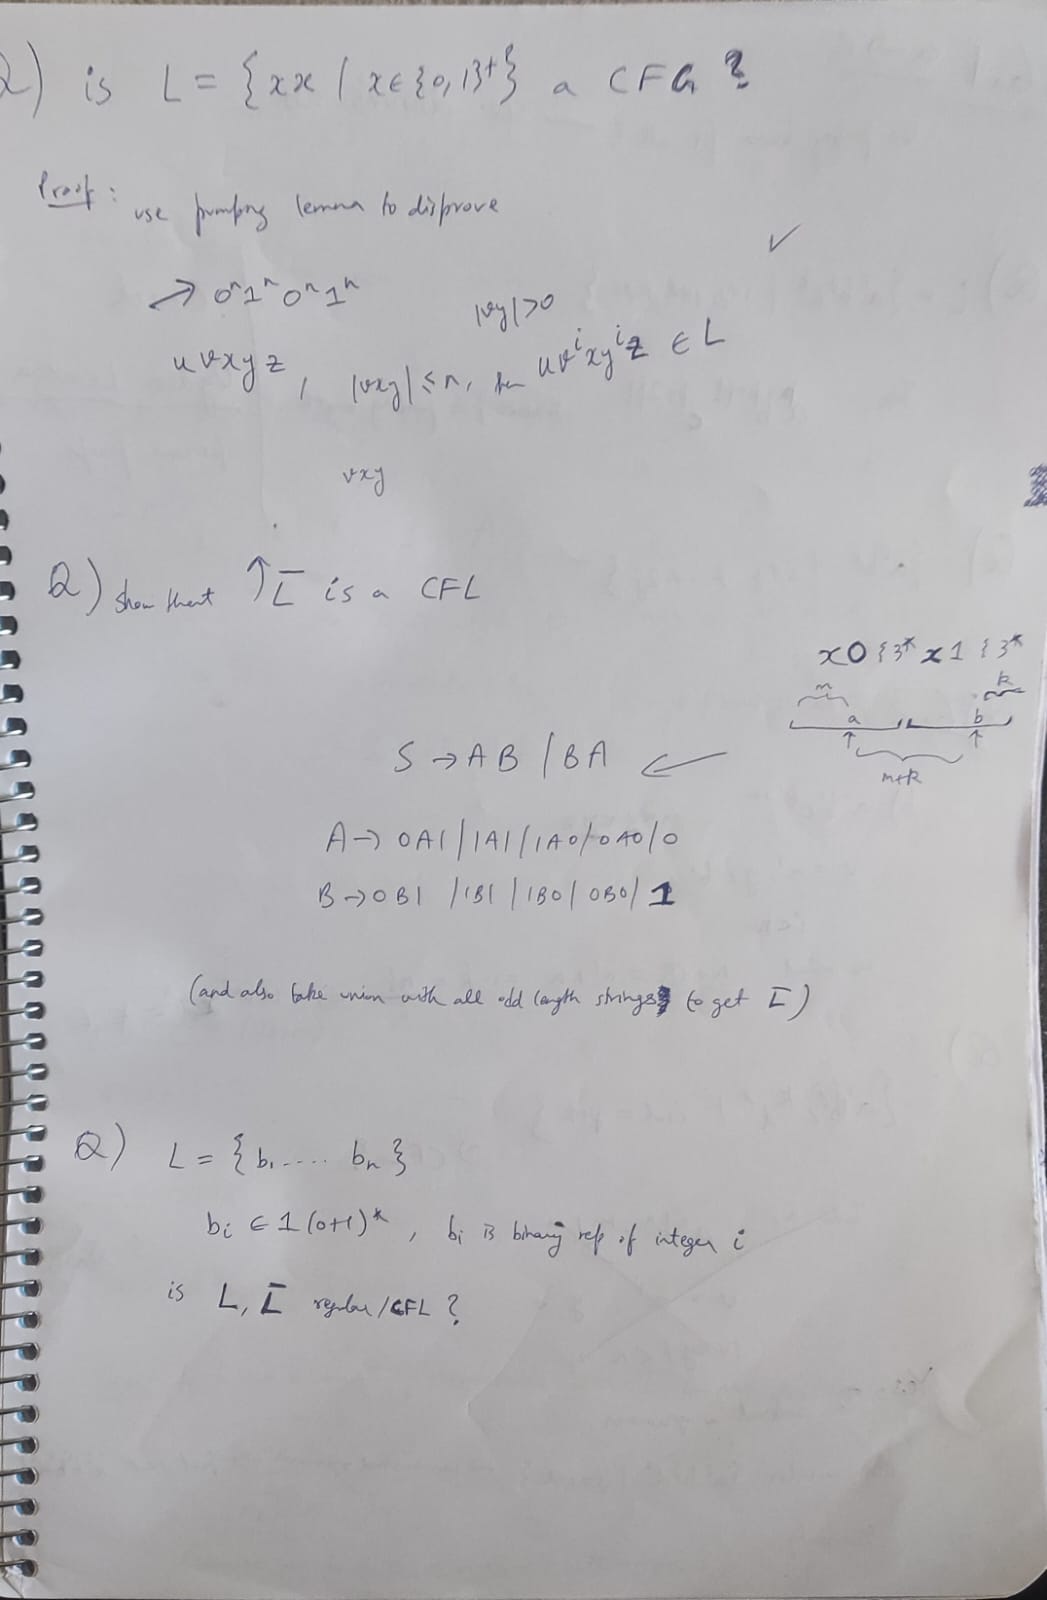 Q) is L = {xx / x∈{0,1}⁺} a CFG ?
Proof : use pumping lemma to disprove
✓
→ 0ⁿ1ⁿ0ⁿ1ⁿ
|vy|>0
uvxyz , |vxy| ≤ n, then uvⁱxyⁱz ∈ L
vxy
Q) Show that ↑ L̅ is a CFL
x0{}* x1{}*
m k
a b
↑ ↑
m+k
S → AB / BA ←
A → 0A1 / 1A1 / 1A0 / 0A0 / 0
B → 0B1 / 1B1 / 1B0 / 0B0 / 1
(and also take union with all odd length strings to get L̅)
Q) L = {b₁ ..... bₙ}
bᵢ ∈ 1(0+1)* , bᵢ is binary rep of integer i
is L, L̅ regular/CFL ?